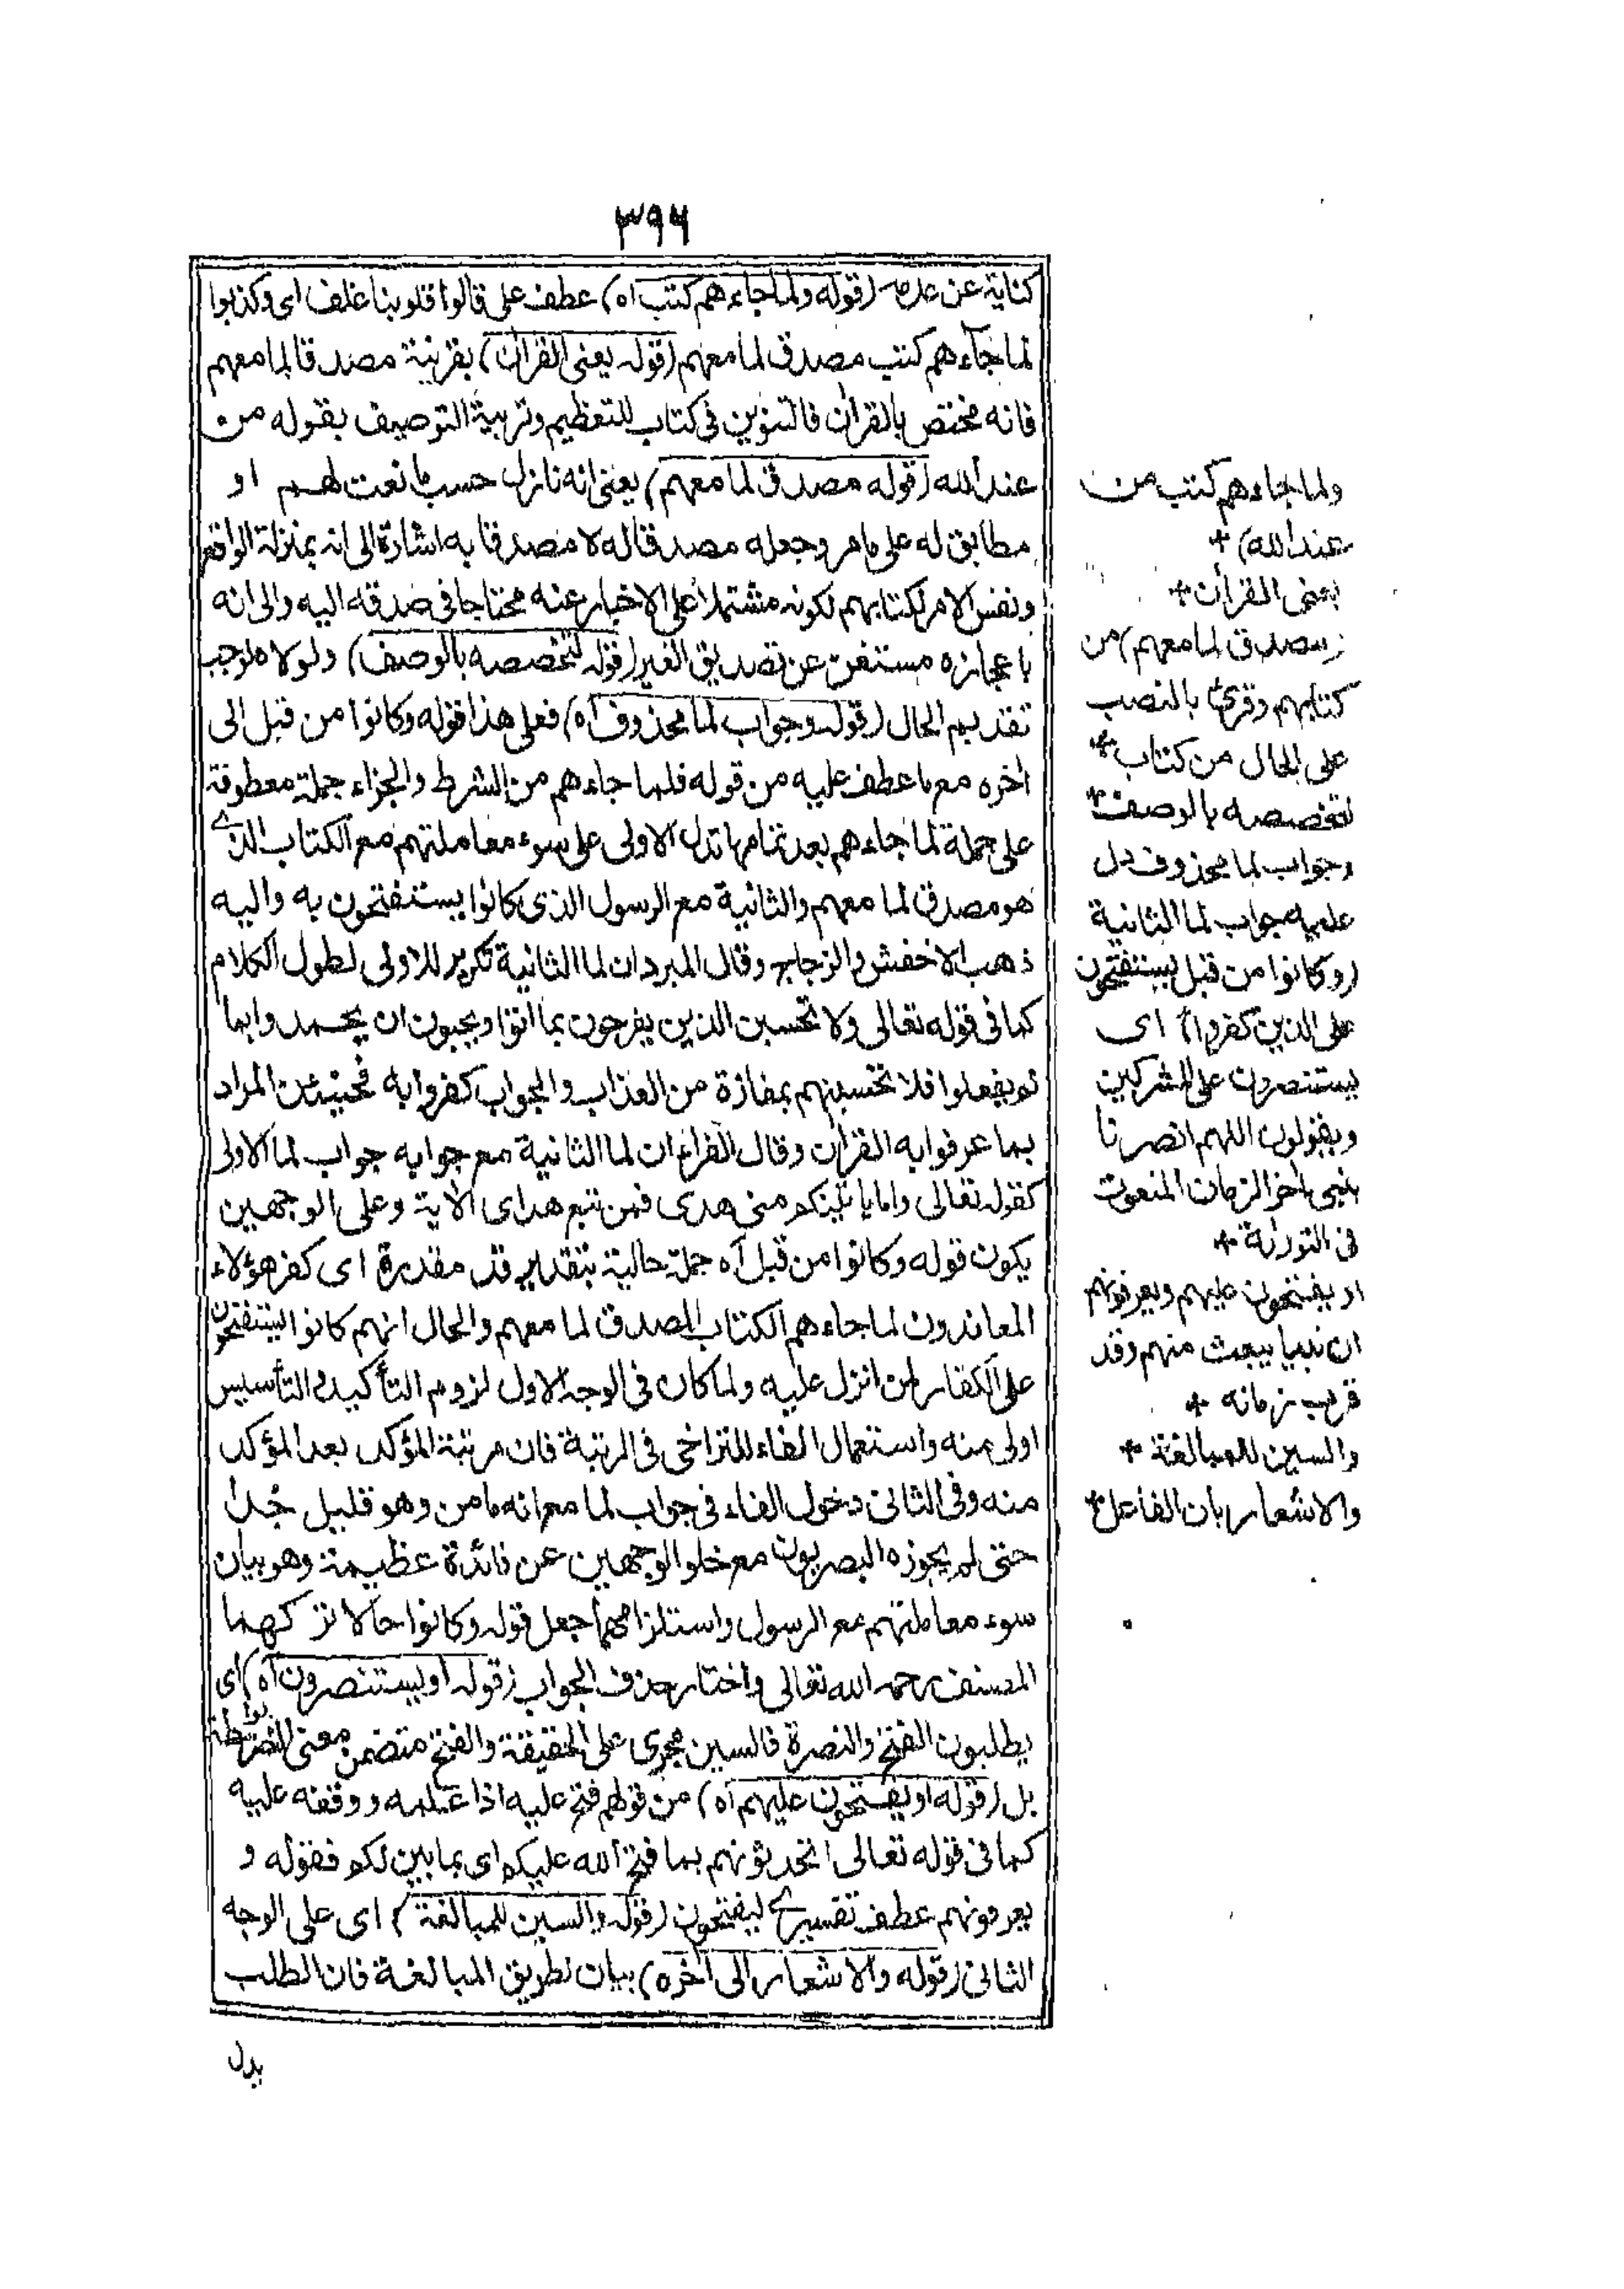 ٣٩٦
كناية عن عدمه (قوله ولما جاءهم كتب اه) عطف على قالوا قلوبنا غلف اى وكذبوا
لما جآءهم كتب مصدق لما معهم (قوله يعنى القران) بقرينة مصدقا لما معهم
فانه مختص بالقران فالتنوين فى كتاب للتعظيم وتربية التوصيف بقوله من
عند الله (قوله مصدق لما معهم) يعنى انه نازل حسب ما نعت لهم او
مطابق له على ما مر وجعله مصدقا له لا مصدقا به اشارة الى انه بمنزلة الواقع
ونفس الامر لكتابهم لكونه مشتملا على الاخبار عنه محتاجا فى صدقه اليه والى انه
باعجازه مستغن عن تصديق الغير (قوله لتخصصه بالوصف) ولولاه لوجب
تقديم الحال (قوله وجواب لما محذوف اه) فعلى هذا قوله وكانوا من قبل الى
اخره مع ما عطف عليه من قوله فلما جاءهم من الشرط والجزاء جملة معطوفة
على جملة لما جاءهم بعد تمامها تدل الاولى على سوء معاملتهم مع الكتاب الذے
هو مصدق لما معهم والثانية مع الرسول الذى كانوا يستفتحون به واليه
ذهب الاخفش والزجاج وقال المبرد ان لما الثانية تكرير للاولى لطول الكلام
كما فى قوله تعالى ولا تحسبن الذين يفرحون بما اتوا ويحبون ان يحمدوا بما
لم يفعلوا فلا تحسبنهم بمفازة من العذاب والجواب كفروا به فحينئذ المراد
بما عرفوا به القران وقال الفراء ان لما الثانية مع جوابه جواب لما الاولى
كقوله تعالى واما ياتينكم منى هدى فمن تبع هداى الآية وعلى الوجهين
يكون قوله وكانوا من قبل آه جملة حالية بتقدير قد مقدرة اى كفر هؤلاء
المعاندون لما جاءهم الكتاب المصدق لما معهم والحال انهم كانوا يستفتحون
على الكفار لمن انزل عليه ولما كان فى الوجه الاول لزوم التأكيد والتأسيس
اولى منه واستعمال الفاء للتراخى فى الرتبة فان مرتبة المؤكد بعد المؤكد
منه وفى الثانى دخول الفاء فى جواب لما مع انه ماض وهو قليل جدا
حتى لم يجوزه البصريون مع خلو الوجهين عن فائدة عظيمة وهو بيان
سوء معاملتهم مع الرسول واستلزامهما جعل قوله وكانوا حالا تركهما
المصنف رحمه الله تعالى واختار حذف الجواب (قوله او يستنصرون آه) اى
يطلبون الفتح والنصرة فالسين مجرى على الحقيقة والفتح متضمن معنى النصر بواسطة
بل (قوله او يفتحون عليهم اه) من قولهم فتح عليه اذا علمه ووقفه عليه
كما فى قوله تعالى اتحدثونهم بما فتح الله عليكم اى بما بين لكم فقوله و
يعرفونهم عطف تفسيرى ليفتحون (قوله والسين للمبالغة) اى على الوجه
الثانى (قوله والاشعار الى اخره) بيان لطريق المبالغة فان الطلب
بدل
ولما جاءهم كتب من
عند الله) +
يعنى القرأن +
(مصدق لما معهم) من
كتابهم وقرئ بالنصب
على الحال من كتاب +
لتخصصه بالوصف +
وجواب لما محذوف دل
عليه جواب لما الثانية
(وكانوا من قبل يستفتحون
على الذين كفروا) اى
يستنصرون على المشركين
ويقولون اللهم انصرنا
بنبى اخر الزمان المنعوت
فى التورٰىة +
او يفتحون عليهم ويعرفونهم
ان نبيا يبعث منهم وقد
قرب زمانه +
والسين للمبالغة +
والاشعار بان الفاعل +